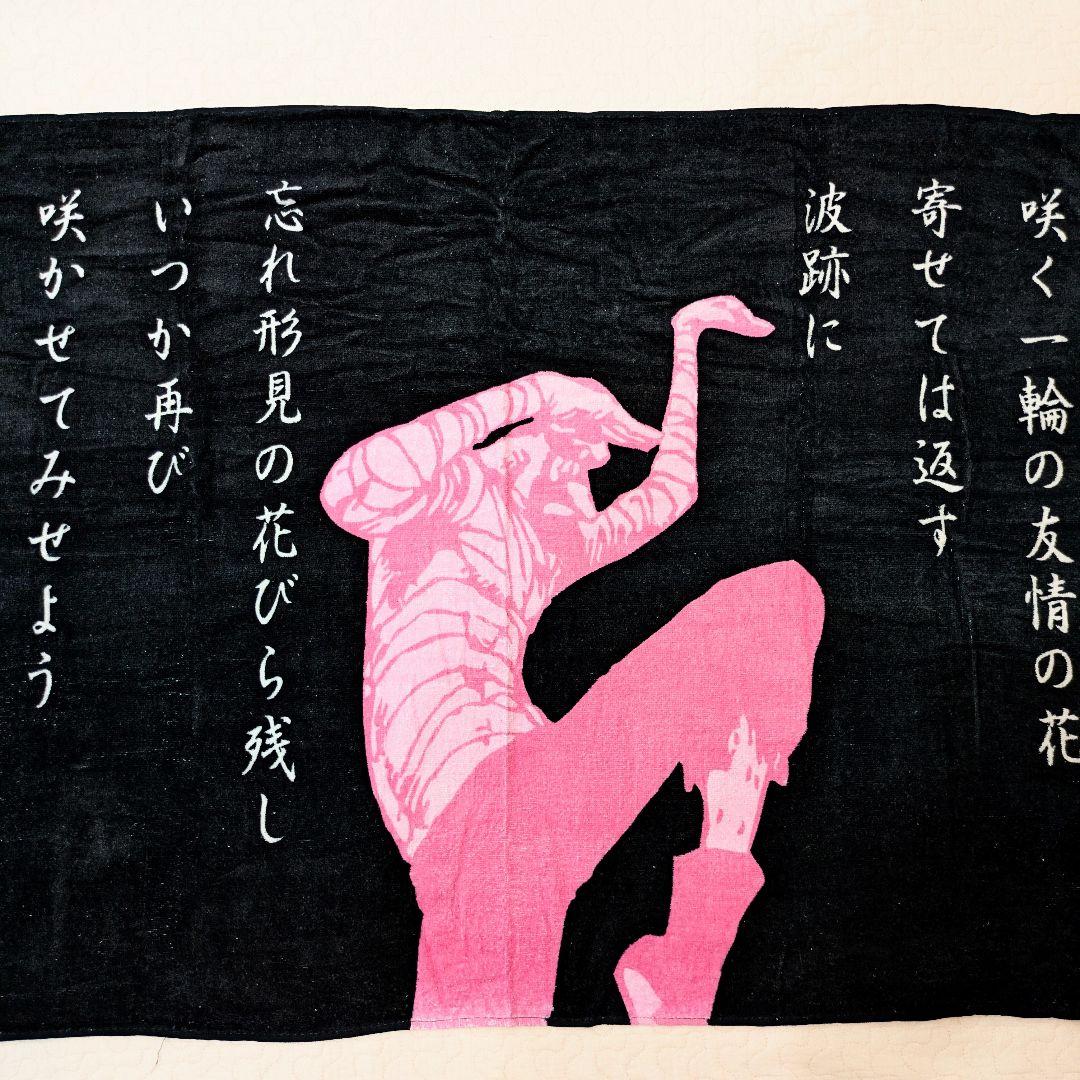 咲く一輪の友情の花
寄せては返す
波跡に
忘れ形見の花びら残し
いつか再び
咲かせてみせよう